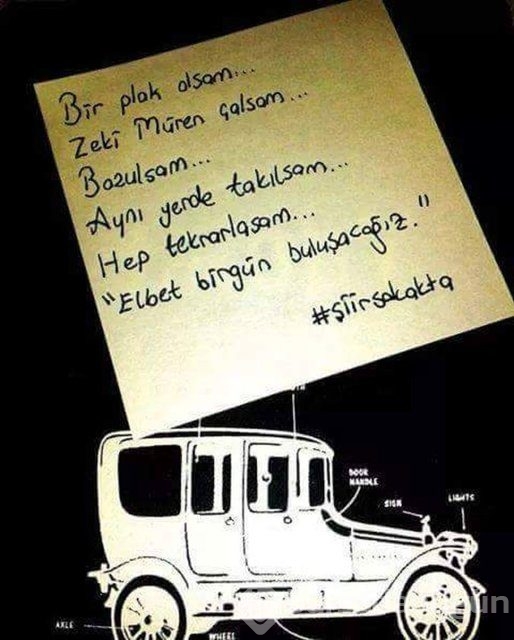 Bir plak olsam...
Zeki Müren çalsam...
Bozulsam...
Aynı yerde takılsam...
Hep tekrarlasam...
"Elbet birgün buluşacağız."
#şiirsokakta
DOOR
HANDLE
SIGN
LIGHTS
AXLE
WHEEL